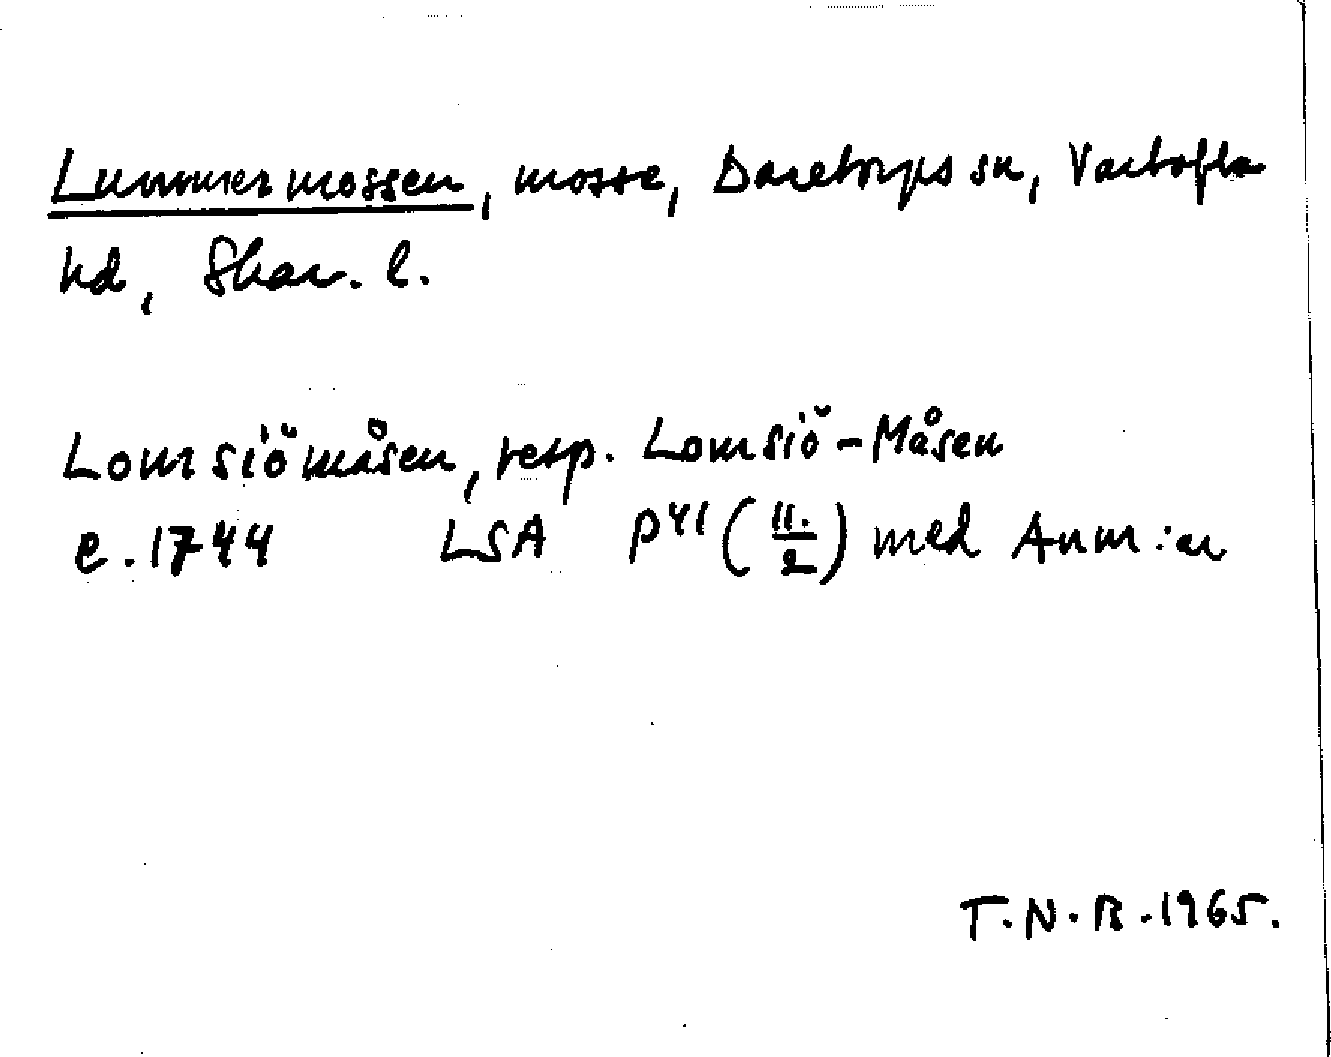 Lummermossen, mosse, Daretorps sn, Vartofta
hd, Skar. l.
Lomsiömåsen, resp. Lomsiö-Måsen
c. 1744 LSA P41 (11./2) med Anm:ar
T.N.B. 1965.